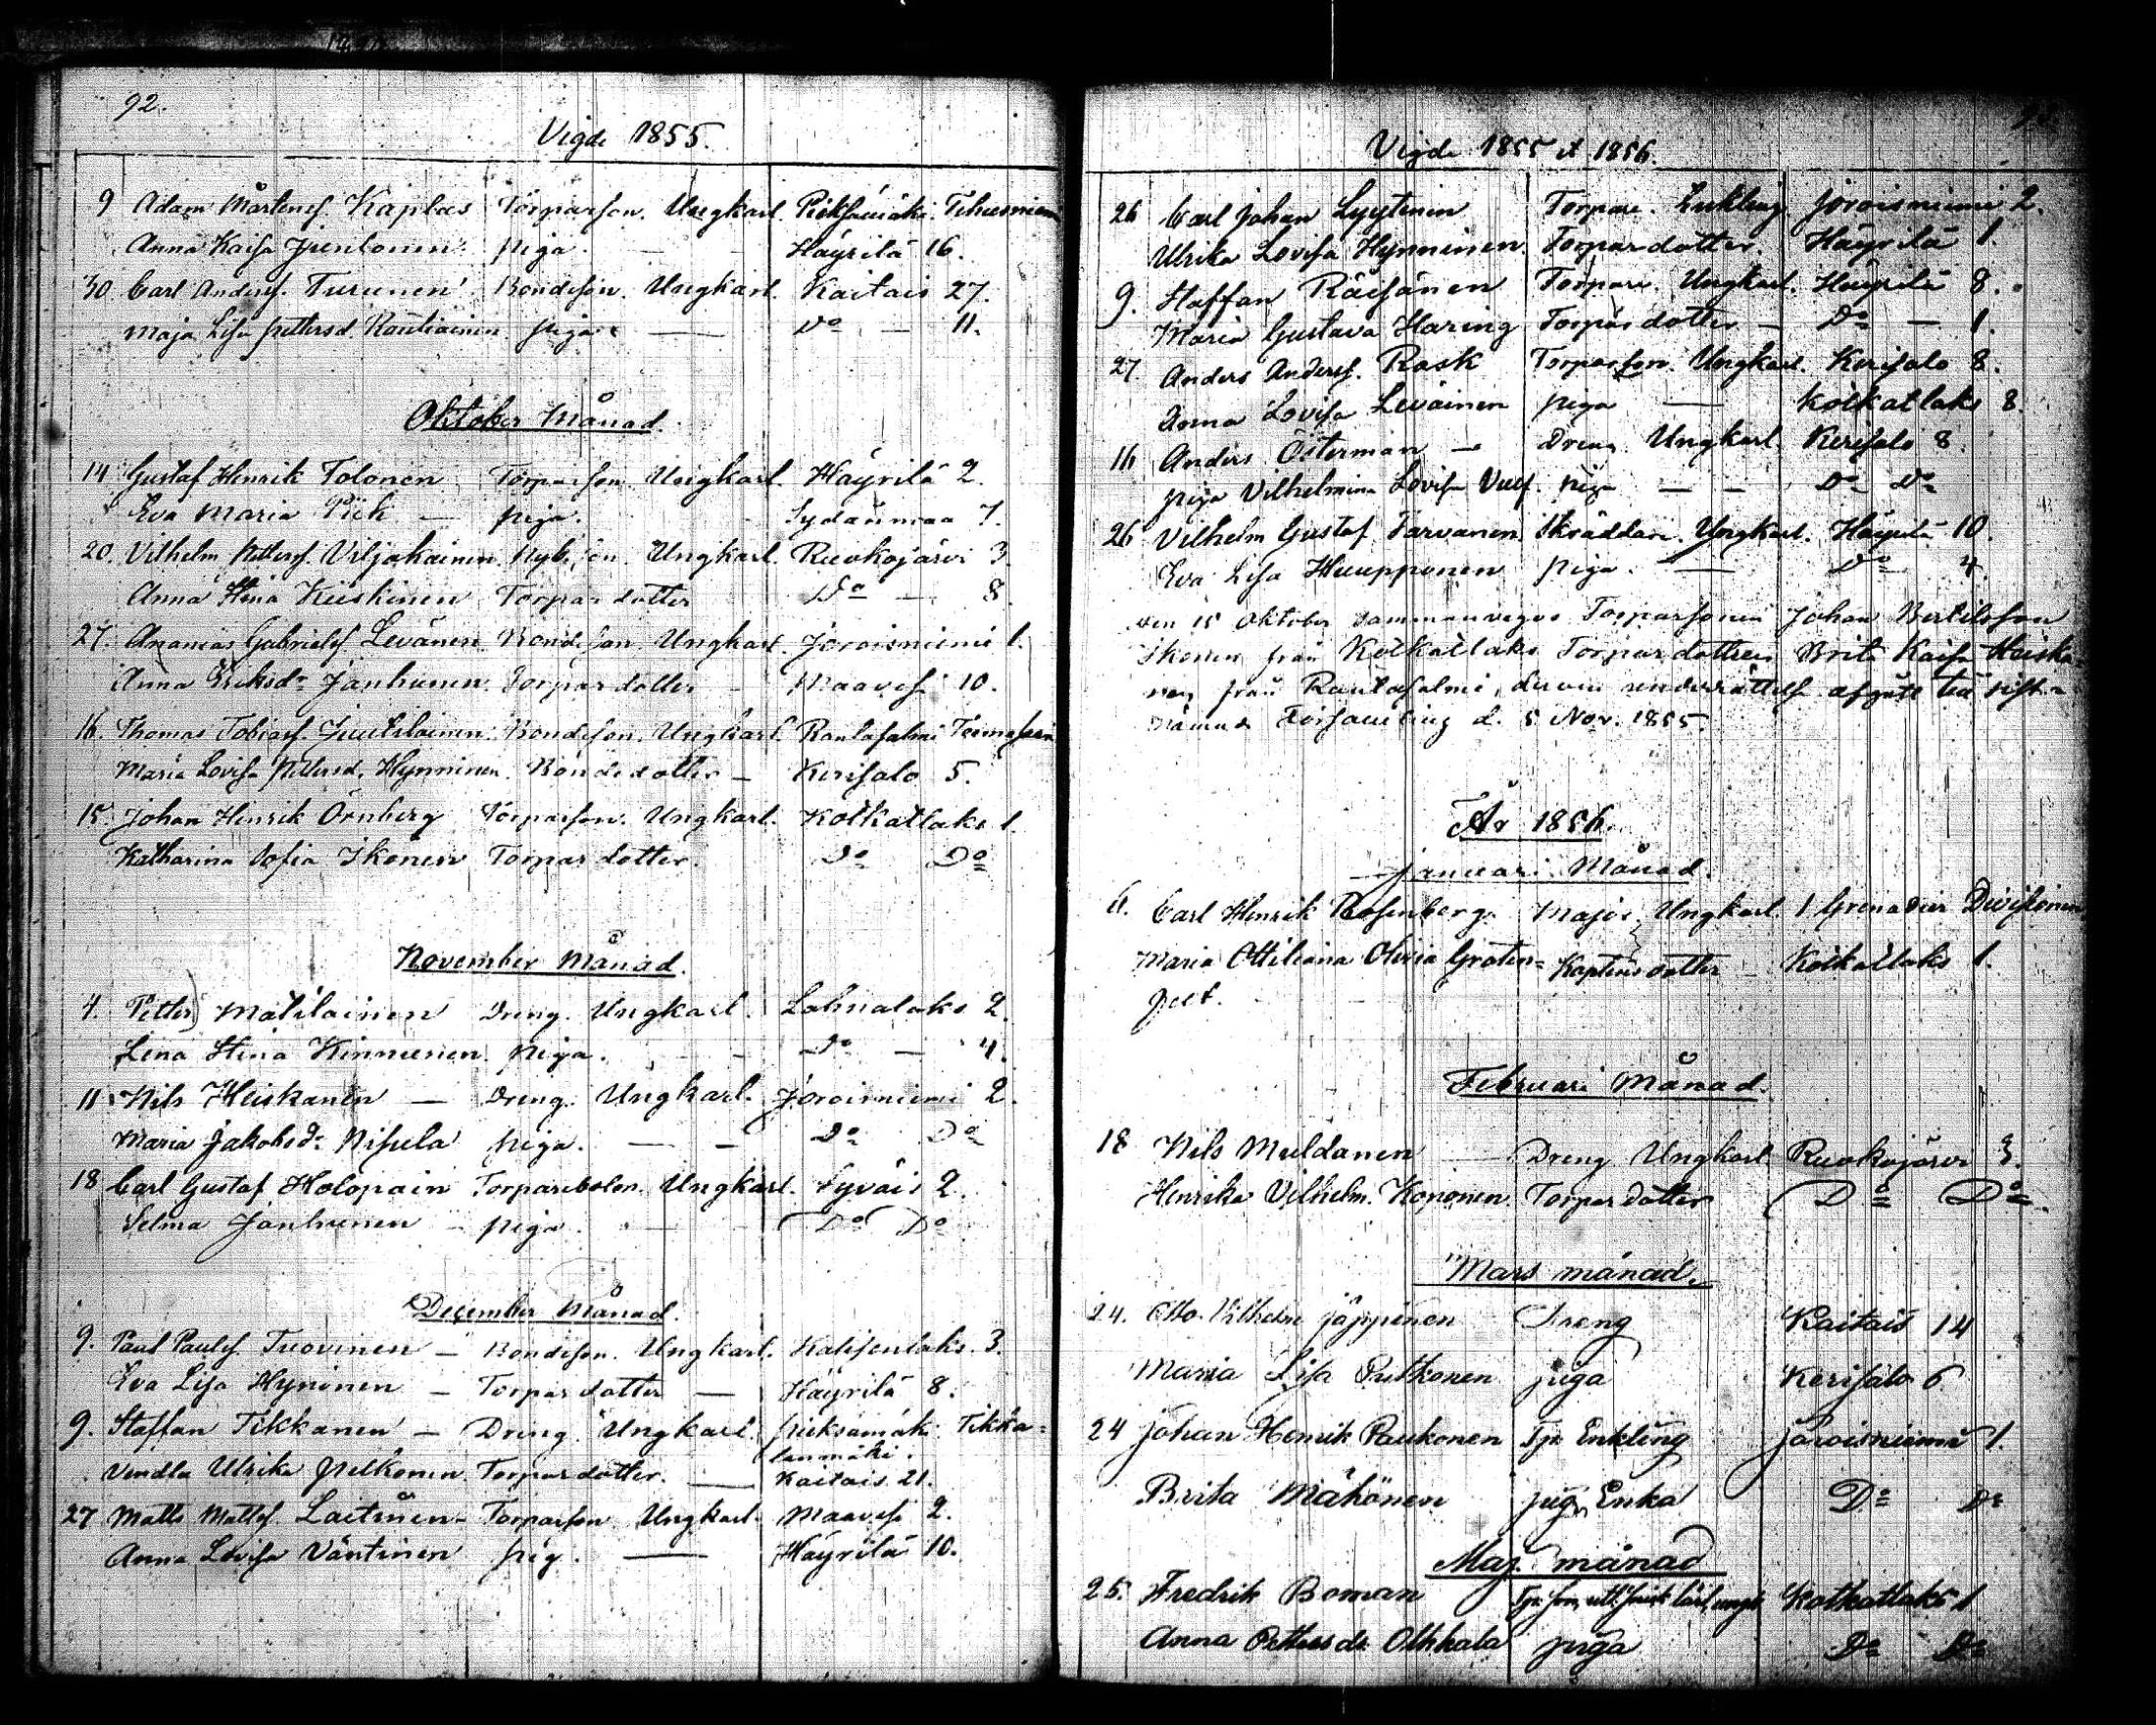 92.
Vigde 1855.
9 Adam Mårtensf. Kaplas Torparson. Ungkarl. Pieksämäki
Anna Kaisa piga. — Häyrilä 16.
30. Carl Andersf. Turunen Bondeson. Ungkarl. Kaitais 27.
Maja Lisa Pettersd. Rautiainen piga. — Do — 11.
Oktober Månad.
14 Gustaf Henrik Tolonen Torparson Ungkarl. Häyrilä 2.
Eva Maria — piga. Sydänmaa 7.
20. Vilhelm Pettersf. Viljakainen Ungkarl. Ruokojärvi 3.
Anna Stina Kiiskinen Torpardotter Do — 8
27. Ananias Gabrielsf. Levänen Bondeson. Ungkarl. Joroisniemi 1.
Anna Eriksdr Janhunen Torpardotter — Maavesi 10.
16. Thomas Tobiasf. Juutilainen. Bondeson. Ungkarl. Rantasalmi
Maria Lovisa Pettersd. Hynninen. Bondedotter — Kerisalo 5.
15. Johan Hinrik Örnberg Torparson. Ungkarl. Kotkatlaks 1.
Katharina Sofia Ikonen Torpardotter. Do Do
November Månad.
4. Petter Matilainen Dreng. Ungkarl. Lahnalaks 2.
Lena Stina Kinnunen. piga. — Do — 4.
11 Nils Heiskanen — Dreng. Ungkarl. Joroisniemi 2.
Maria Jakobsdr Nisula piga. — — Do Do
18 Carl Gustaf Holopain Ungkarl. Syväis 2.
Selma Janhunen — piga. — Do Do
December Månad.
9. Paul Paulsf. Tuovinen — Bondeson. Ungkarl. 3.
Eva Lisa Hyninen — Torpardotter — Häyrilä 8.
9. Staffan Tikkanen — Dreng. Ungkarl. Pieksämäki Tikka-
lanmäki.
Vendla Ulrika Pelkonen Torpardotter. — Kaitais 21.
27 Matts Mattsf. Laitinen — Torparson Ungkarl. Maavesi 2.
Anna Lovisa Väntinen pig. — Häyrilä 10.
Vigde 1855 et 1856.
26 Carl Johan Lyytinen Torpare. Enkling Joroisniemi 2.
Ulrika Lovisa Hynninen. Torpardotter. Häyrilä 1.
9. Staffan Räisänen Torpare. Ungkarl. Häyrilä 8.
Maria Gustava Haring Torpardotter — Do — 1.
27. Anders Andersf. Rask Torparson. Ungkarl. Kerisalo 8.
Anna Lovisa Leväinen piga — Kotkatlaks 8.
16 Anders Österman — Dreng Ungkarl. Kerisalo 8.
piga Vilhelmina Lovisa piga — — Do Do
26 Vilhelm Gustaf Tarvanen Skräddare. Ungkarl. Häyrilä 10.
Eva Lisa Huupponen piga. — Do 4.
den 15 Oktober sammanvegos Torparsonen Johan Bertilsson
Ikonen från Kotkatlaks Torpardottren Brita Kaisa Heiska-
nen från Rantasalmi, derom underrättelse sist-
nämnde Församling d. 5 Nov. 1855.
År 1856.
Januari Månad.
6. Carl Henrik Rosenberg. Major. Ungkarl. 1 Grenadier Divisionen
Maria Ottiliana Olivia Groten- Kaptensdotter — Kotkatlaks 1.
felt.
Februari Månad.
18 Nils Muldanen — Dreng Ungkarl. Ruokojärvi 3.
Henrika Vilhelm. Kononen. Torpardotter Do Do
Mars månad.
24. Otto Vilhelm Jäppinen Dreng Kaitais 14
Maria Lisa Pulkonen piga Kerisalo 6
24 Johan Henrik Paukonen Tp. Enkling Joroisniemi 1.
Brita Mähönen pig. Enka Do Do
Maj. månad
25. Fredrik Boman Kotkatlaks 1
Anna Pettersdr Olkkola piga Do Do